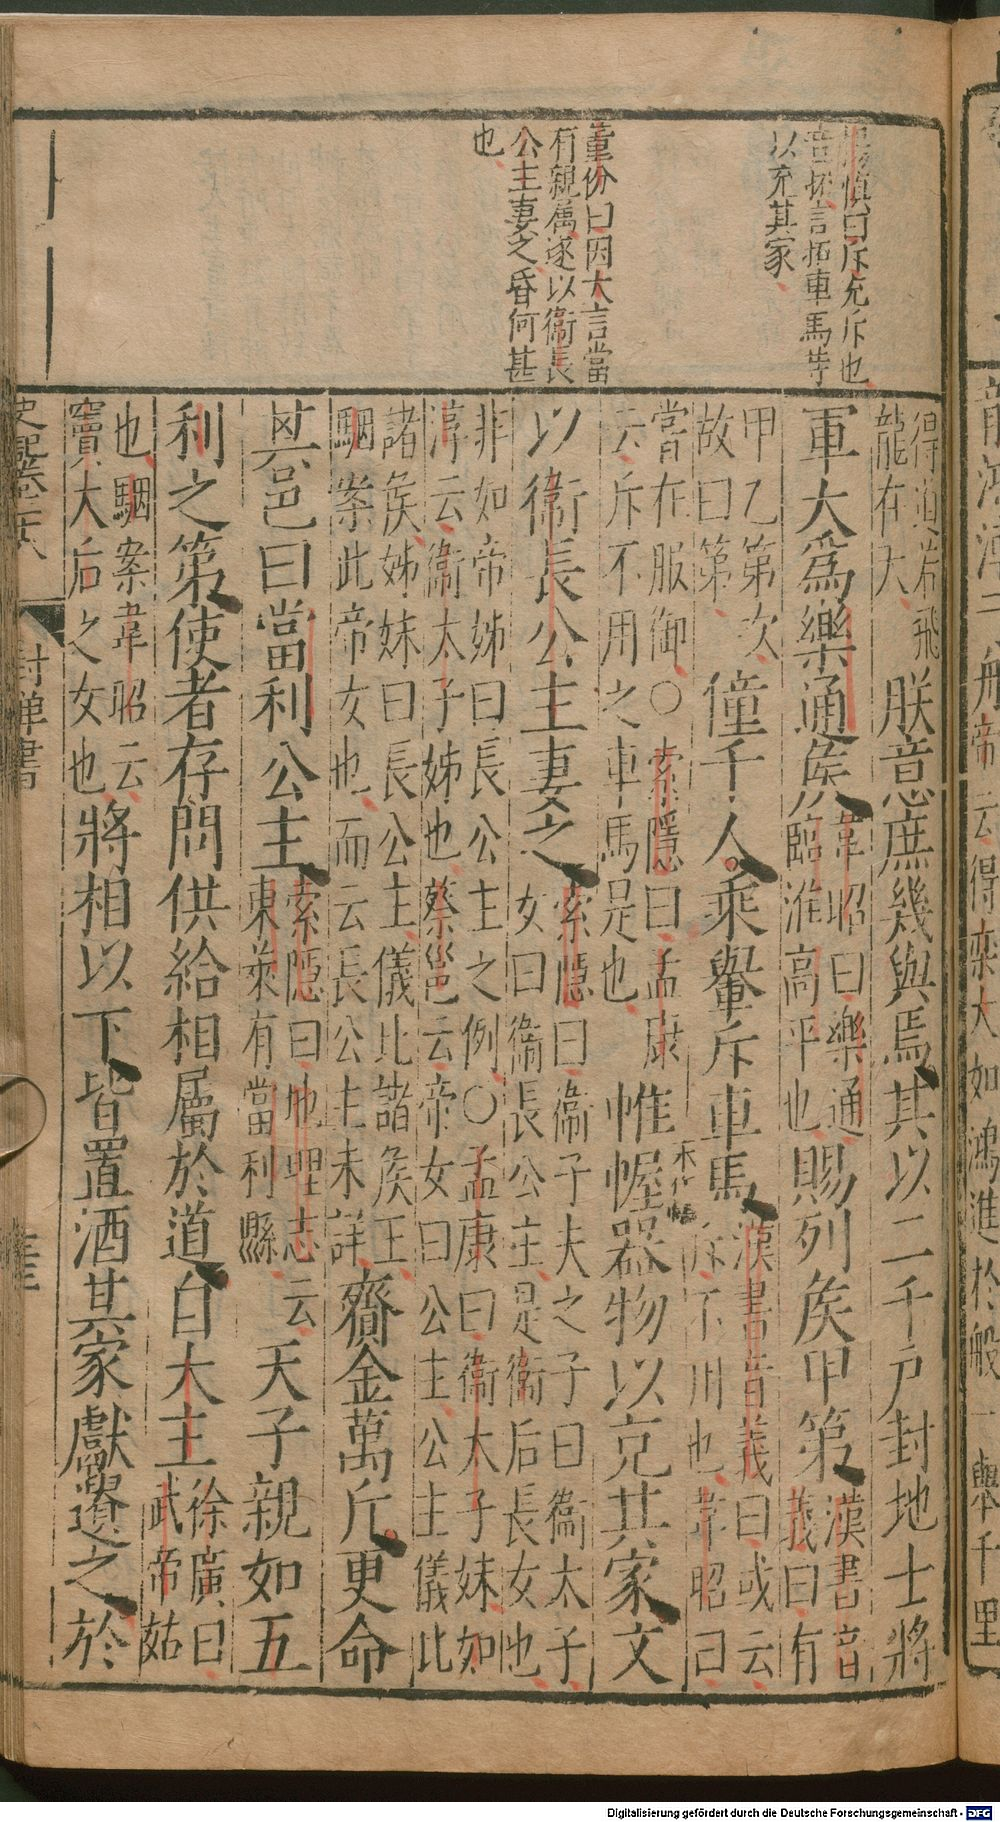 龍鴻漸于般帝云得欒大如鴻進於般一舉千里
得道若飛
龍在天
朕意庶幾與焉其以二千戶封地士將
軍大為樂通侯
韋昭曰樂通
臨淮高平也
賜列侯甲第
漢書音
義曰有
甲乙第次
故曰第
僮千人乘轝斥車馬
漢書音義曰或云
斥不用也韋昭曰
嘗在服御○索隱曰孟康
云斥不用之車馬是也
帷
幄器物以充其家文
以衛長公主妻之
索隱曰衛子夫之子曰衛太子
女曰衛長公主是衛后長女也
非如帝姊曰長公主之例○孟康曰衛太子妹如
淳云衛太子姊也蔡邕云帝女曰公主公主儀比
諸侯姊妹曰長公主儀比諸侯王
駰案此帝女也而云長公主未詳
齎金萬斤更命
其邑曰當利公主
索隱曰地理志云
東萊有當利縣
天子親如五
利之第使者存問供給相屬於道自大主
徐廣曰
武帝姑
也駰案韋昭云
竇太后之女也
將相以下皆置酒其家獻遺之於
史記卷二十八
封禪書
慎曰斥充斥也
音拓言拓車馬等
以充其家
董份曰因大言當
有親屬遂以衛長
公主妻之昏何甚
也
Digitalisierung gefördert durch die Deutsche Forschungsgemeinschaft - DFG